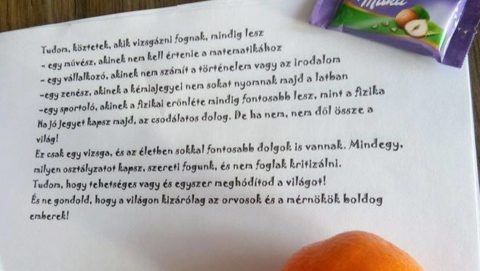 Milka
Tudom, köztetek, akik vizsgázni fognak, mindig lesz
- egy művész, akinek nem kell értenie a matematikához
- egy vállalkozó, akinek nem számít a történelem vagy az irodalom
-egy zenész, akinek a kémiajegyei nem sokat nyomnak majd a latban
-egy sportoló, akinek a fizikai erőnléte mindig fontosabb lesz, mint a fizika
Ha jó jegyet kapsz majd, az csodálatos dolog. De ha nem, nem dől össze a
világ!
Ez csak egy vizsga, és az életben sokkal fontosabb dolgok is vannak. Mindegy,
milyen osztályzatot kapsz, szereti fogunk, és nem foglak kritizálni.
Tudom, hogy tehetséges vagy és egyszer meghódítod a világot!
És ne gondold, hogy a világon kizárólag az orvosok és a mérnökök boldog
emberek!